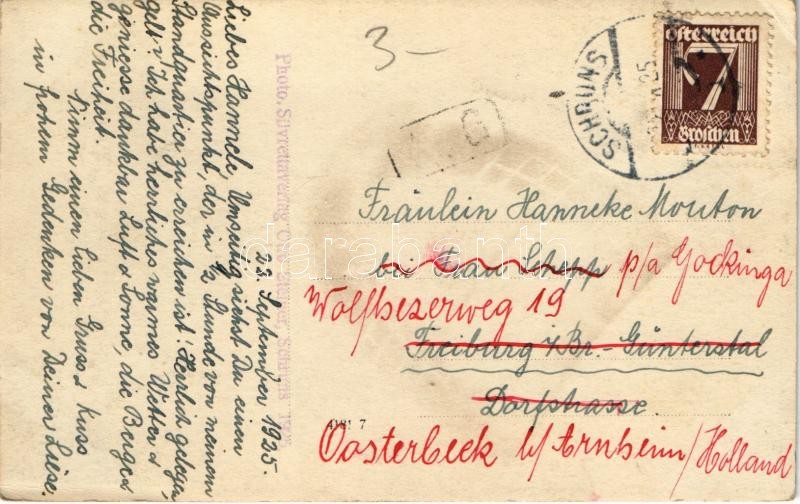 23. September 1925.
Liebes Hannele, Umseitig siehst Du einen
Aussichtspunkt, der in ½ Stunde von meinem
Standquartier zu erreichen ist! Herrlich gelegen,
gelt? Ich habe herrliches warmes Wetter &
geniesse dankbar Luft & Sonne, die Berge &
die Freiheit.
Nimm einen lieben Gruss & Kuss
in frohem Gedenken von Deiner Liese.
Photo. Silvrettaverlag Schruns
3-
österreich
7
Groschen
SCHRUNS
Fräulein Hanneke Mouton
bei Frau Schepp p/a Gockinga
Wolfhezerweg 19
Freiburg i/Br.-Günterstal
Dorfstrasse
Oosterbeek b/Arnheim/Holland
darabanth